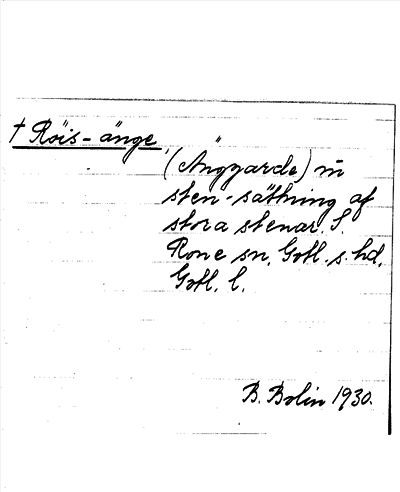 † Röis-änge,
(Änggarde) m̄
sten-sättning af
stora stenar. S.
Rone sn, Gotl. s. hd,
Gotl. l.
B. Bolin 1930.